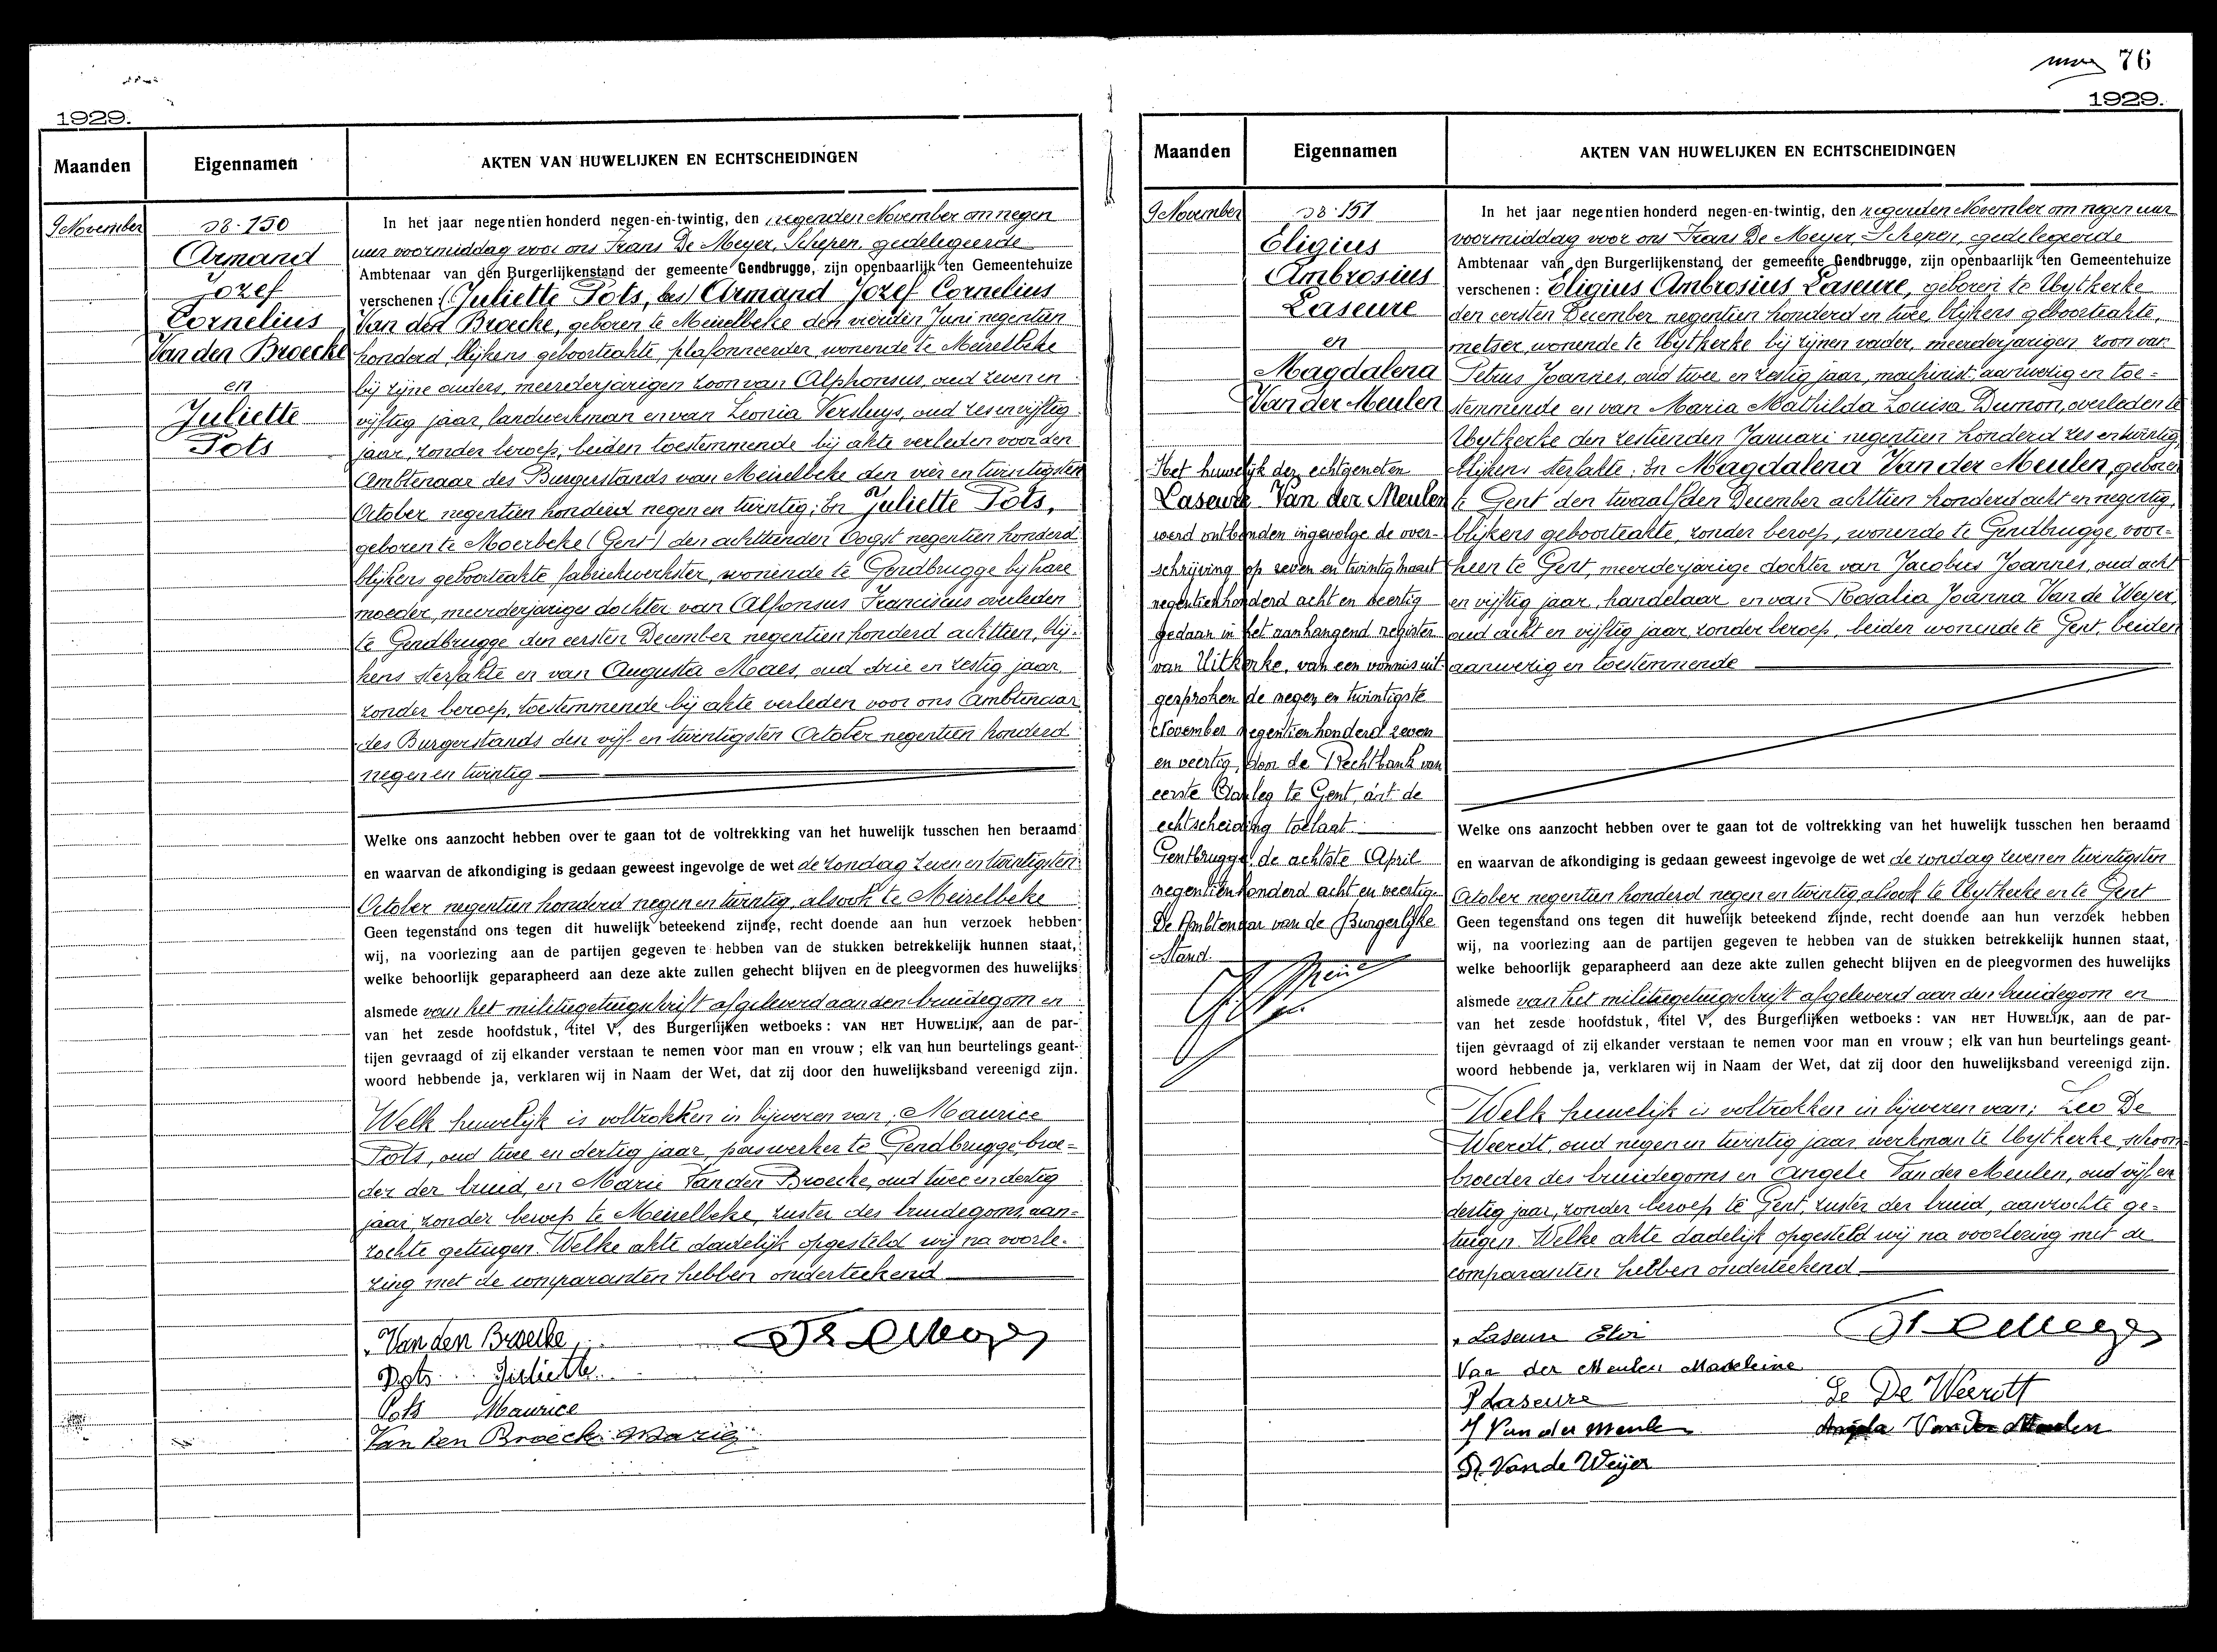 1929.
Maanden Eigennamen AKTEN VAN HUWELIJKEN EN ECHTSCHEIDINGEN
9 November
N8 - 150
Armand
Jozef
Cornelius
Van den Broecke
en
Juliette
Pots
In het jaar negentien honderd negen-en-twintig, den negenden November om negen
uur voormiddag voor ons Frans De Meyer, Schepen, gedelegeerde
Ambtenaar van den Burgerlijkenstand der gemeente Gendbrugge, zijn openbaarlijk ten Gemeentehuize
verschenen : (Juliette Pots, bes) Armand Jozef Cornelius
Van den Broecke, geboren te Meirelbeke den vierden Juni negentien
honderd, blijkens geboorteakte, plafonneerder, wonende te Meirelbeke
bij zijne ouders, meerderjarigen zoon van Alphonsus, oud zeven en
vijftig jaar, landwerkman en van Leonia Versluys, oud zes en vijftig
jaar, zonder beroep, beiden toestemmende bij akte verleden voor den
Ambtenaar des Burgerstands van Meirelbeke den vier en twintigsten
October negentien honderd negen en twintig; En Juliette Pots,
geboren te Moerbeke (Gent) den achttienden Oogst negentien honderd
blijkens geboorteakte fabriekwerkster, wonende te Gendbrugge bij hare
moeder, meerderjarige dochter van Alfonsus Franciscus overleden
te Gendbrugge den eersten December negentien honderd achttien, blij-
kens sterfakte en van Augusta Maes, oud drie en zestig jaar,
zonder beroep, toestemmende bij akte verleden voor ons Ambtenaar
des Burgerstands den vijf en twintigsten October negentien honderd
negen en twintig
Welke ons aanzocht hebben over te gaan tot de voltrekking van het huwelijk tusschen hen beraamd
en waarvan de afkondiging is gedaan geweest ingevolge de wet de zondag zeven en twintigsten
October negentien honderd negen en twintig, alsook te Meirelbeke
Geen tegenstand ons tegen dit huwelijk beteekend zijnde, recht doende aan hun verzoek hebben
wij, na voorlezing aan de partijen gegeven te hebben van de stukken betrekkelijk hunnen staat,
welke behoorlijk geparapheerd aan deze akte zullen gehecht blijven en de pleegvormen des huwelijks
alsmede van het militiegetuigschrift afgeleverd aan den bruidegom en
van het zesde hoofdstuk, titel V, des Burgerlijken wetboeks : VAN HET HUWELIJK, aan de par-
tijen gevraagd of zij elkander verstaan te nemen voor man en vrouw ; elk van hun beurtelings geant-
woord hebbende ja, verklaren wij in Naam der Wet, dat zij door den huwelijksband vereenigd zijn.
Welk huwelijk is voltrokken in bijwezen van; Maurice
Pots, oud twee en dertig jaar, paswerker te Gendbrugge, broe-
der der bruid, en Marie Van den Broecke, oud twee en dertig
jaar, zonder beroep te Meirelbeke, zuster des bruidegoms, aan-
zochte getuigen. Welke akte dadelijk opgesteld wij na voorle-
zing met de comparanten hebben onderteekend
Van den Broecke
Pots Juliette
Pots Maurice
Van den Broeck Marie
76
1929.
Maanden Eigennamen AKTEN VAN HUWELIJKEN EN ECHTSCHEIDINGEN
9 November
N8 - 151
Eligius
Ambrosius
Laseure
en
Magdalena
Van der Meulen
Het huwelijk der echtgenoten
Laseure Van der Meulen
werd ontbonden ingevolge de over-
schrijving op zeven en twintig maart
negentienhonderd acht en veertig
gedaan in het aanhangend register
van Uitkerke, van een vonnis uit-
gesproken de negen en twintigste
November negentienhonderd zeven
en veertig, door de Rechtbank van
eerste Aanleg te Gent, dat de
echtscheiding toelaat.
Gentbrugge, de achtste April
negentienhonderd acht en veertig.
De Ambtenaar van de Burgerlijke
Stand.
In het jaar negentien honderd negen-en-twintig, den negenden November om negen uur
voormiddag voor ons Frans De Meyer, Schepen, gedelegeerde
Ambtenaar van den Burgerlijkenstand der gemeente Gendbrugge, zijn openbaarlijk ten Gemeentehuize
verschenen : Eligius Ambrosius Laseure, geboren te Uytkerke
den eersten December negentien honderd en twee, blijkens geboorteakte,
metser, wonende te Uytkerke bij zijnen vader, meerderjarigen zoon van
Petrus Joannes, oud twee en zestig jaar, machinist, aanwezig en toe-
stemmende en van Maria Mathilda Louisa Dumon, overleden te
Uytkerke den zestienden Januari negentien honderd zes en twintig,
blijkens sterfakte; En Magdalena Van der Meulen, geboren
te Gent den twaalfden December achttien honderd acht en negentig,
blijkens geboorteakte, zonder beroep, wonende te Gendbrugge, voor-
heen te Gent, meerderjarige dochter van Jacobus Joannes, oud acht
en vijftig jaar, handelaar en van Rosalia Joanna Van de Weyer,
oud acht en vijftig jaar, zonder beroep, beiden wonende te Gent, beiden
aanwezig en toestemmende
Welke ons aanzocht hebben over te gaan tot de voltrekking van het huwelijk tusschen hen beraamd
en waarvan de afkondiging is gedaan geweest ingevolge de wet de zondag zeven en twintigsten
October negentien honderd negen en twintig, alsook te Uytkerke en te Gent
Geen tegenstand ons tegen dit huwelijk beteekend zijnde, recht doende aan hun verzoek hebben
wij, na voorlezing aan de partijen gegeven te hebben van de stukken betrekkelijk hunnen staat,
welke behoorlijk geparapheerd aan deze akte zullen gehecht blijven en de pleegvormen des huwelijks
alsmede van het militiegetuigschrift afgeleverd aan den bruidegom en
van het zesde hoofdstuk, titel V, des Burgerlijken wetboeks : VAN HET HUWELIJK, aan de par-
tijen gevraagd of zij elkander verstaan te nemen voor man en vrouw ; elk van hun beurtelings geant-
woord hebbende ja, verklaren wij in Naam der Wet, dat zij door den huwelijksband vereenigd zijn.
Welk huwelijk is voltrokken in bijwezen van; Leo De
Weerdt, oud negen en twintig jaar, werkman te Uytkerke, schoon-
broeder des bruidegoms en Angele Van der Meulen, oud vijf en
dertig jaar, zonder beroep te Gent, zuster der bruid, aanzochte ge-
tuigen. Welke akte dadelijk opgesteld wij na voorlezing met de
comparanten hebben onderteekend
Laseure Eloi
Van der Meulen Madeleine
P Laseure Le De Weerdt
J Van der Meulen Angela Van der Meulen
R. Van de Weijer